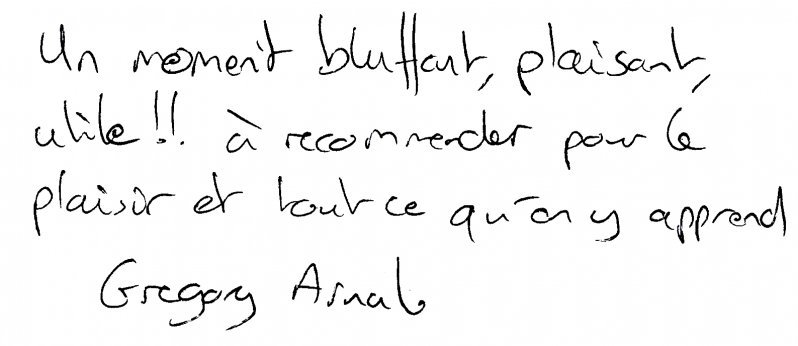 Un moment bluffant, plaisant,
utile!! à recommender pour le
plaisir et tout ce qu'on y apprend
Gregory